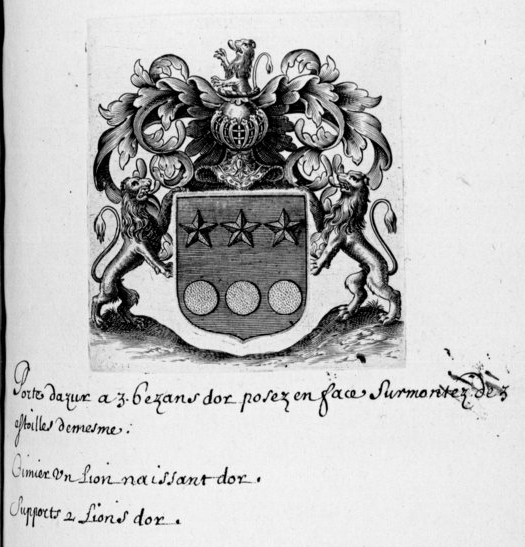 Porte dazur a 3. bezans dor posez en face Surmontez de 3
estoilles demesme.
Cimier Un Lion naissant dor.
Supports 2 Lions dor.